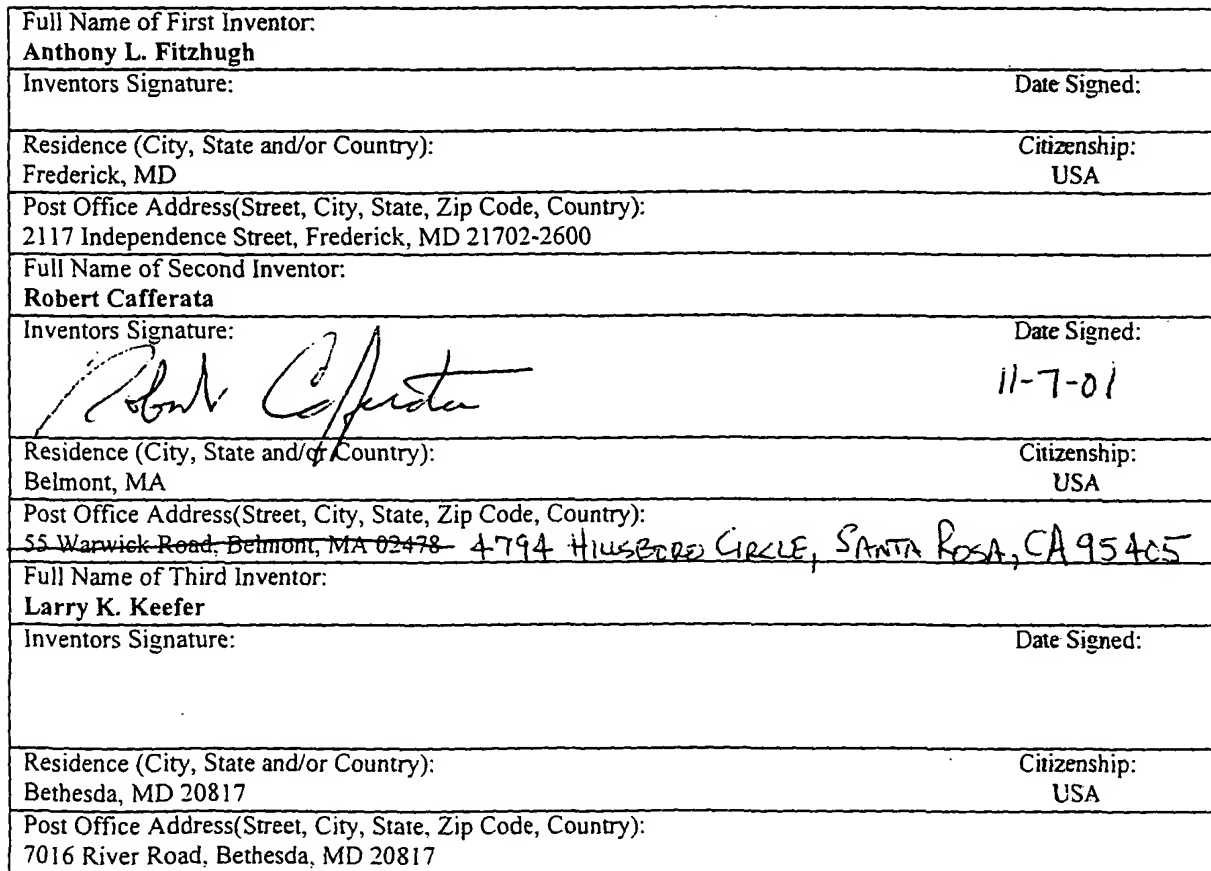 Full Name of First Inventor:
Anthony L. Fitzhugh
Inventors Signature: Date Signed:
Residence (City, State and/or Country): Citizenship:
Frederick, MD USA
Post Office Address(Street, City, State, Zip Code, Country):
2117 Independence Street, Frederick, MD 21702-2600
Full Name of Second Inventor:
Robert Cafferata
Inventors Signature: Date Signed:
Robert Cafferata 11-7-01
Residence (City, State and/or Country): Citizenship:
Belmont, MA USA
Post Office Address(Street, City, State, Zip Code, Country):
55 Warwick Road, Belmont, MA 02478 4794 HILLSBORO CIRCLE, SANTA ROSA, CA 95405
Full Name of Third Inventor:
Larry K. Keefer
Inventors Signature: Date Signed:
Residence (City, State and/or Country): Citizenship:
Bethesda, MD 20817 USA
Post Office Address(Street, City, State, Zip Code, Country):
7016 River Road, Bethesda, MD 20817